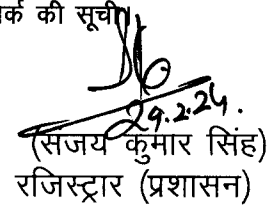 र्क की सूची।
29.2.24.
(संजय कुमार सिंह)
रजिस्ट्रार (प्रशासन)